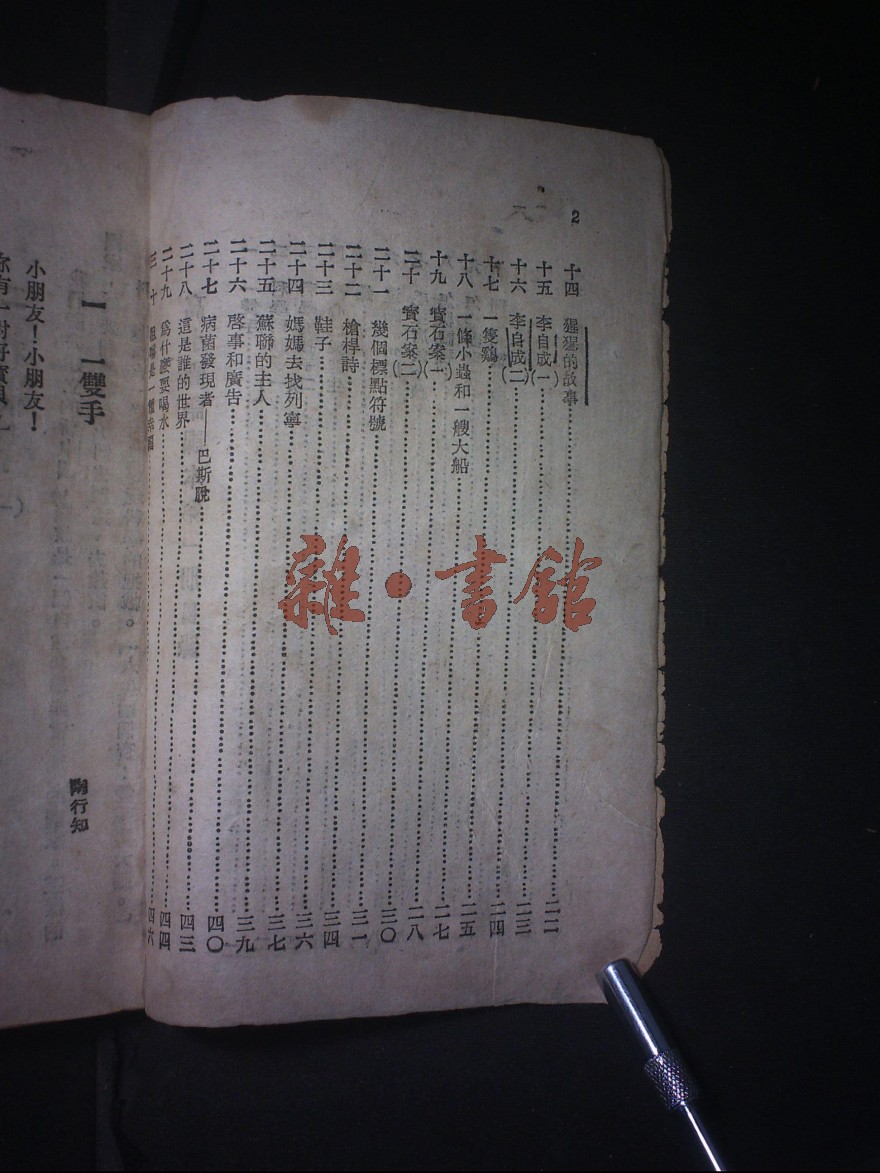 2
十四 猩猩的故事……二二
十五 李自成(一)……二三
十六 李自成(二)……二四
十七 一隻鷄……二五
十八 一條小蟲和一艘大船……二七
十九 寶石案(一)……二八
二十 寶石案(二)……三〇
二十一 幾個標點符號……三一
二十二 槍桿詩……三四
二十三 鞋子……三六
二十四 媽媽去找列寧……三七
二十五 蘇聯的主人……三九
二十六 啓事和廣告……四〇
二十七 病菌發現者——巴斯脫……四三
二十八 這是誰的世界……四四
二十九 爲什麼要喝水……四六
三十
一 一雙手
陶行知
小朋友！小朋友！
雜·書館